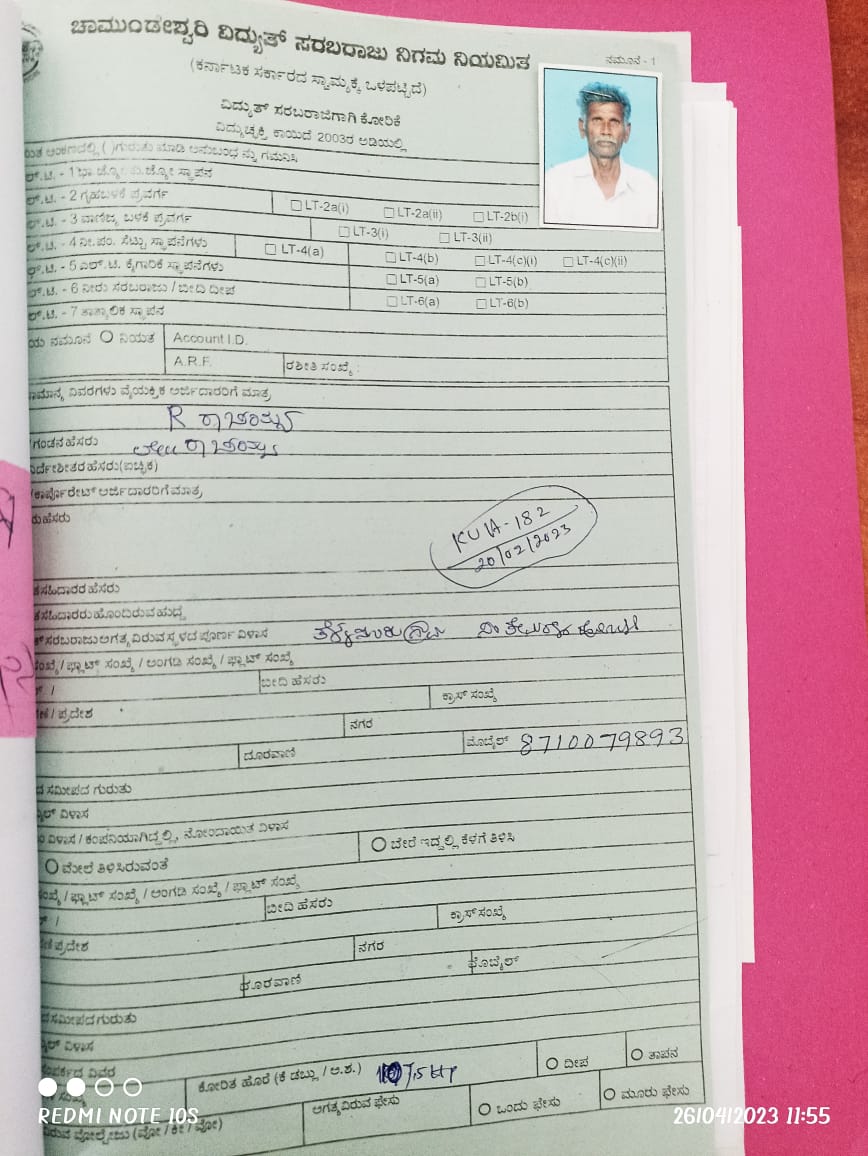 ಚಾಮುಂಡೇಶ್ವರಿ ವಿದ್ಯುತ್ ಸರಬರಾಜು ನಿಗಮ ನಿಯಮಿತ
ನಮೂನೆ - 1
(ಕರ್ನಾಟಕ ಸರ್ಕಾರದ ಸ್ವಾಮ್ಯಕ್ಕೆ ಒಳಪಟ್ಟಿದೆ)
ವಿದ್ಯುತ್ ಸರಬರಾಜಿಗಾಗಿ ಕೋರಿಕೆ
ವಿದ್ಯುಚ್ಛಕ್ತಿ ಕಾಯಿದೆ 2003ರ ಅಡಿಯಲ್ಲಿ
ಅಂಕಣದಲ್ಲಿ ( )ಗುರುತು ಮಾಡಿ ಅನುಬಂಧ ನ್ನು ಗಮನಿಸಿ
ಲ್.ಟಿ. - 1 ಭಾ.ಜ್ಯೋ ಸ್ಥಾಪನ
ಲ್.ಟಿ. - 2 ಗೃಹಬಳಕೆ ಪ್ರವರ್ಗ LT-2a(i) LT-2a(ii) LT-2b(i)
ಲ್.ಟಿ. - 3 ವಾಣಿಜ್ಯ ಬಳಕೆ ಪ್ರವರ್ಗ LT-3(i) LT-3(ii)
ಲ್.ಟಿ. - 4 ನೀ.ಪಂ. ಸೆಟ್ಟು ಸ್ಥಾಪನೆಗಳು LT-4(a) LT-4(b) LT-4(c)(i) LT-4(c)(ii)
ಲ್.ಟಿ. - 5 ಎಲ್.ಟಿ. ಕೈಗಾರಿಕೆ ಸ್ಥಾಪನೆಗಳು LT-5(a) LT-5(b)
ಲ್.ಟಿ. - 6 ನೀರು ಸರಬರಾಜು / ಬೀದಿ ದೀಪ LT-6(a) LT-6(b)
ಲ್.ಟಿ. - 7 ತಾತ್ಕಾಲಿಕ ಸ್ಥಾಪನ
ಯ ನಮೂನೆ ನಿಯತ Account I.D.
A.R.F. ರಶೀತಿ ಸಂಖ್ಯೆ :
ಾಮಾನ್ಯ ವಿವರಗಳು ವೈಯಕ್ತಿಕ ಅರ್ಜಿದಾರರಿಗೆ ಮಾತ್ರ
R
/ಗಂಡನ ಹೆಸರು
ನಿರ್ದೇಶಿತರ ಹೆಸರು(ಐಚ್ಛಿಕ)
/ಕಾರ್ಪೊರೇಟ್ ಅರ್ಜಿದಾರರಿಗೆ ಮಾತ್ರ
ರು ಹೆಸರು
KUIA-182
20/02/2023
ಕ ಸಹಿದಾರರ ಹೆಸರು
ಕ ಸಹಿದಾರರು ಹೊಂದಿರುವ ಹುದ್ದೆ
ತ್ ಸರಬರಾಜು ಅಗತ್ಯವಿರುವ ಸ್ಥಳದ ಪೂರ್ಣ ವಿಳಾಸ
ಸಂಖ್ಯೆ / ಫ್ಲಾಟ್ ಸಂಖ್ಯೆ / ಅಂಗಡಿ ಸಂಖ್ಯೆ / ಫ್ಲಾಟ್ ಸಂಖ್ಯೆ
ಬೀದಿ ಹೆಸರು
ಕ್ರಾಸ್ ಸಂಖ್ಯೆ
/ ಪ್ರದೇಶ
ನಗರ
ದೂರವಾಣಿ ಮೊಬೈಲ್ 8710079893
ದ ಸಮೀಪದ ಗುರುತು
ೈಲ್ ವಿಳಾಸ
ವಿಳಾಸ / ಕಂಪನಿಯಾಗಿದ್ದಲ್ಲಿ, ನೋಂದಾಯಿತ ವಿಳಾಸ
ಮೇಲೆ ತಿಳಿಸಿರುವಂತೆ ಬೇರೆ ಇದ್ದಲ್ಲಿ ಕೆಳಗೆ ತಿಳಿಸಿ
ಸಂಖ್ಯೆ / ಫ್ಲಾಟ್ ಸಂಖ್ಯೆ / ಅಂಗಡಿ ಸಂಖ್ಯೆ / ಫ್ಲಾಟ್ ಸಂಖ್ಯೆ
ಬೀದಿ ಹೆಸರು ಕ್ರಾಸ್ ಸಂಖ್ಯೆ
ಪ್ರದೇಶ ನಗರ
ದೂರವಾಣಿ ಮೊಬೈಲ್
ದ ಸಮೀಪದ ಗುರುತು
ೈಲ್ ವಿಳಾಸ
ಸಂಪರ್ಕದ ವಿವರ
ಕೋರಿತ ಹೊರೆ (ಕೆ ಡಬ್ಲು / ಅ.ಶ.) 7.5 HP ದೀಪ ತಾಪನ
ಅಗತ್ಯವಿರುವ ಫೇಸು ಒಂದು ಫೇಸು ಮೂರು ಫೇಸು
REDMI NOTE 10S
26/04/2023 11:55